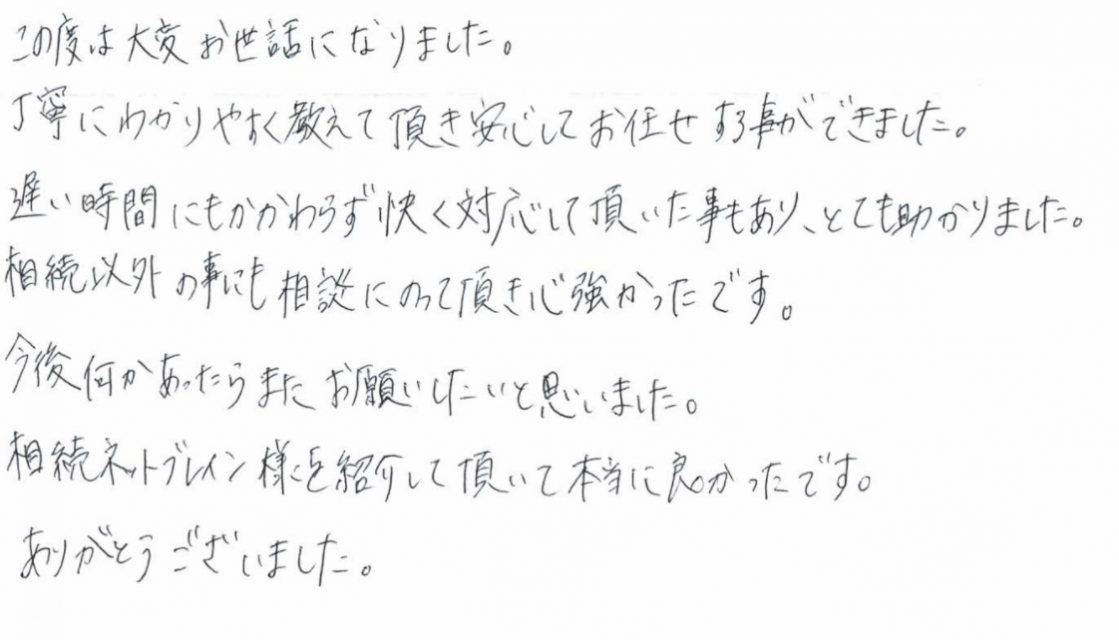 この度は大変お世話になりました。
丁寧にわかりやすく教えて頂き安心してお任せする事ができました。
遅い時間にもかかわらず快く対応して頂いた事もあり、とても助かりました。
相続以外の事にも相談にのって頂き心強かったです。
今後何かあったらまたお願いしたいと思いました。
相続ネットブレイン様を紹介して頂いて本当に良かったです。
ありがとうございました。